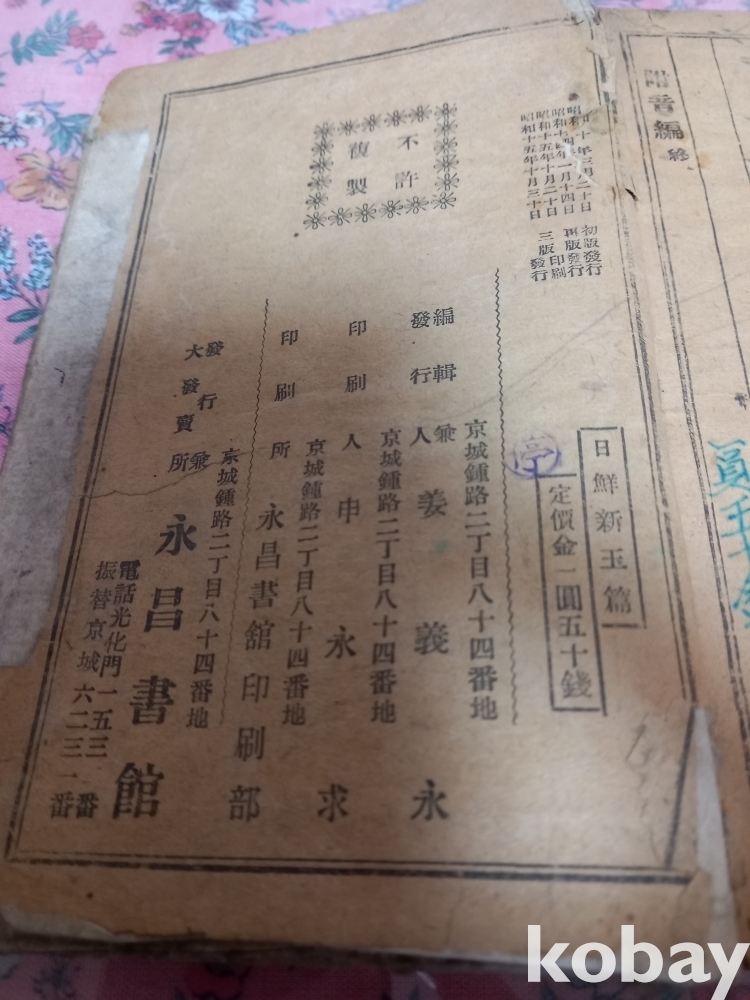 音編 終
十年三月二十日 初版發行
昭和十四年一月十四日 再版發行
昭和十五年十月二十日 三版印刷
昭和十五年十月三十日 發行
不許
複製
日鮮新玉篇
定價金一圓五十錢
亭
京城鍾路二丁目八十四番地
編輯兼
發行人 姜義永
京城鍾路二丁目八十四番地
印刷人 申永求
京城鍾路二丁目八十四番地
印刷所 永昌書舘印刷部
京城鍾路二丁目八十四番地
發行兼
大發賣所 永昌書館
電話光化門一五三番
振替京城六二三一番
kobay